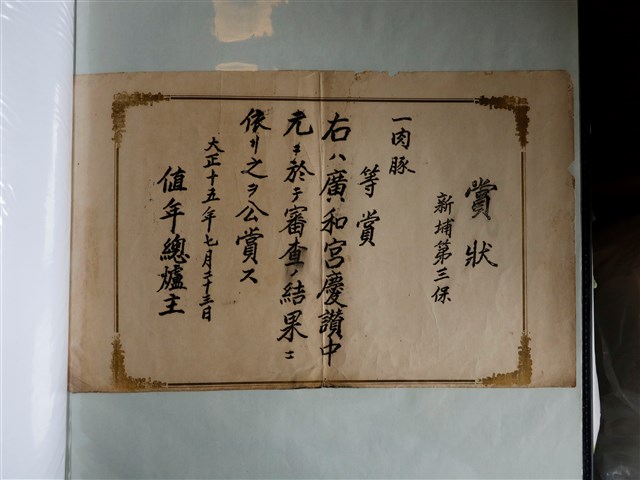 賞狀
新埔第三保
一肉豚
等賞
右ハ廣和宮慶讚中
元ニ於テ審查ノ結果ニ
依リ之ヲ公賞ス
大正十五年七月二十三日
值年總爐主